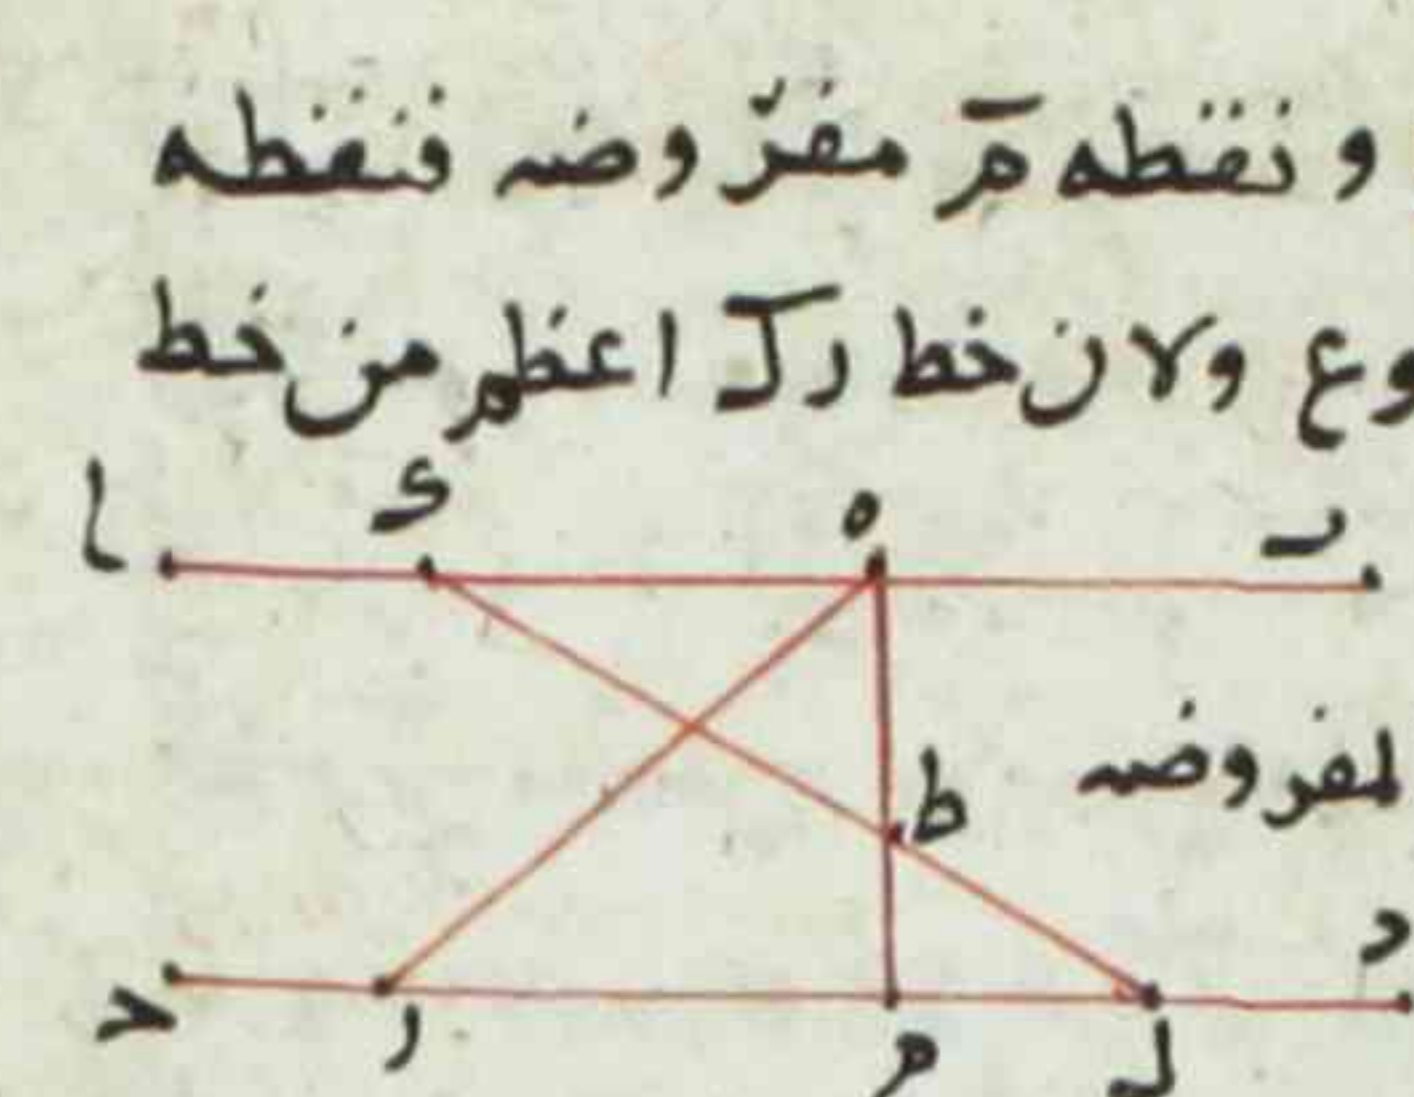 و نقطه م مفروضه فنقطه
وع ولان خط رک اعظم من خط
ا ی ه ب
ط لمفروضه
د
ح ر م ل